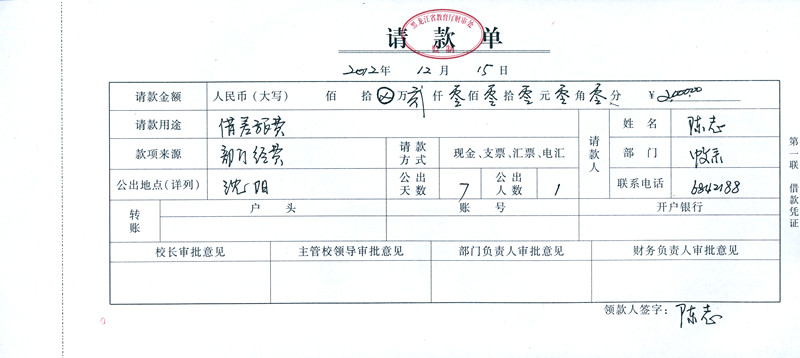 黑龙江省教育厅财审处
监制
请款单
2012年 12月 15日
请款金额 人民币(大写) 佰 拾 ⊗ 万 贰 仟 零 佰 零 拾 零 元 零 角 零 分 ¥2000.00
请款用途 借差旅费
款项来源 部门经费 请款方式 现金、支票、汇票、电汇
公出地点(详列) 沈阳 公出天数 7 公出人数 1
请款人 姓名 陈志
部门
联系电话 6842188
转账 户头 账号 开户银行
校长审批意见 主管校领导审批意见 部门负责人审批意见 财务负责人审批意见
领款人签字: 陈志
第一联 借款凭证